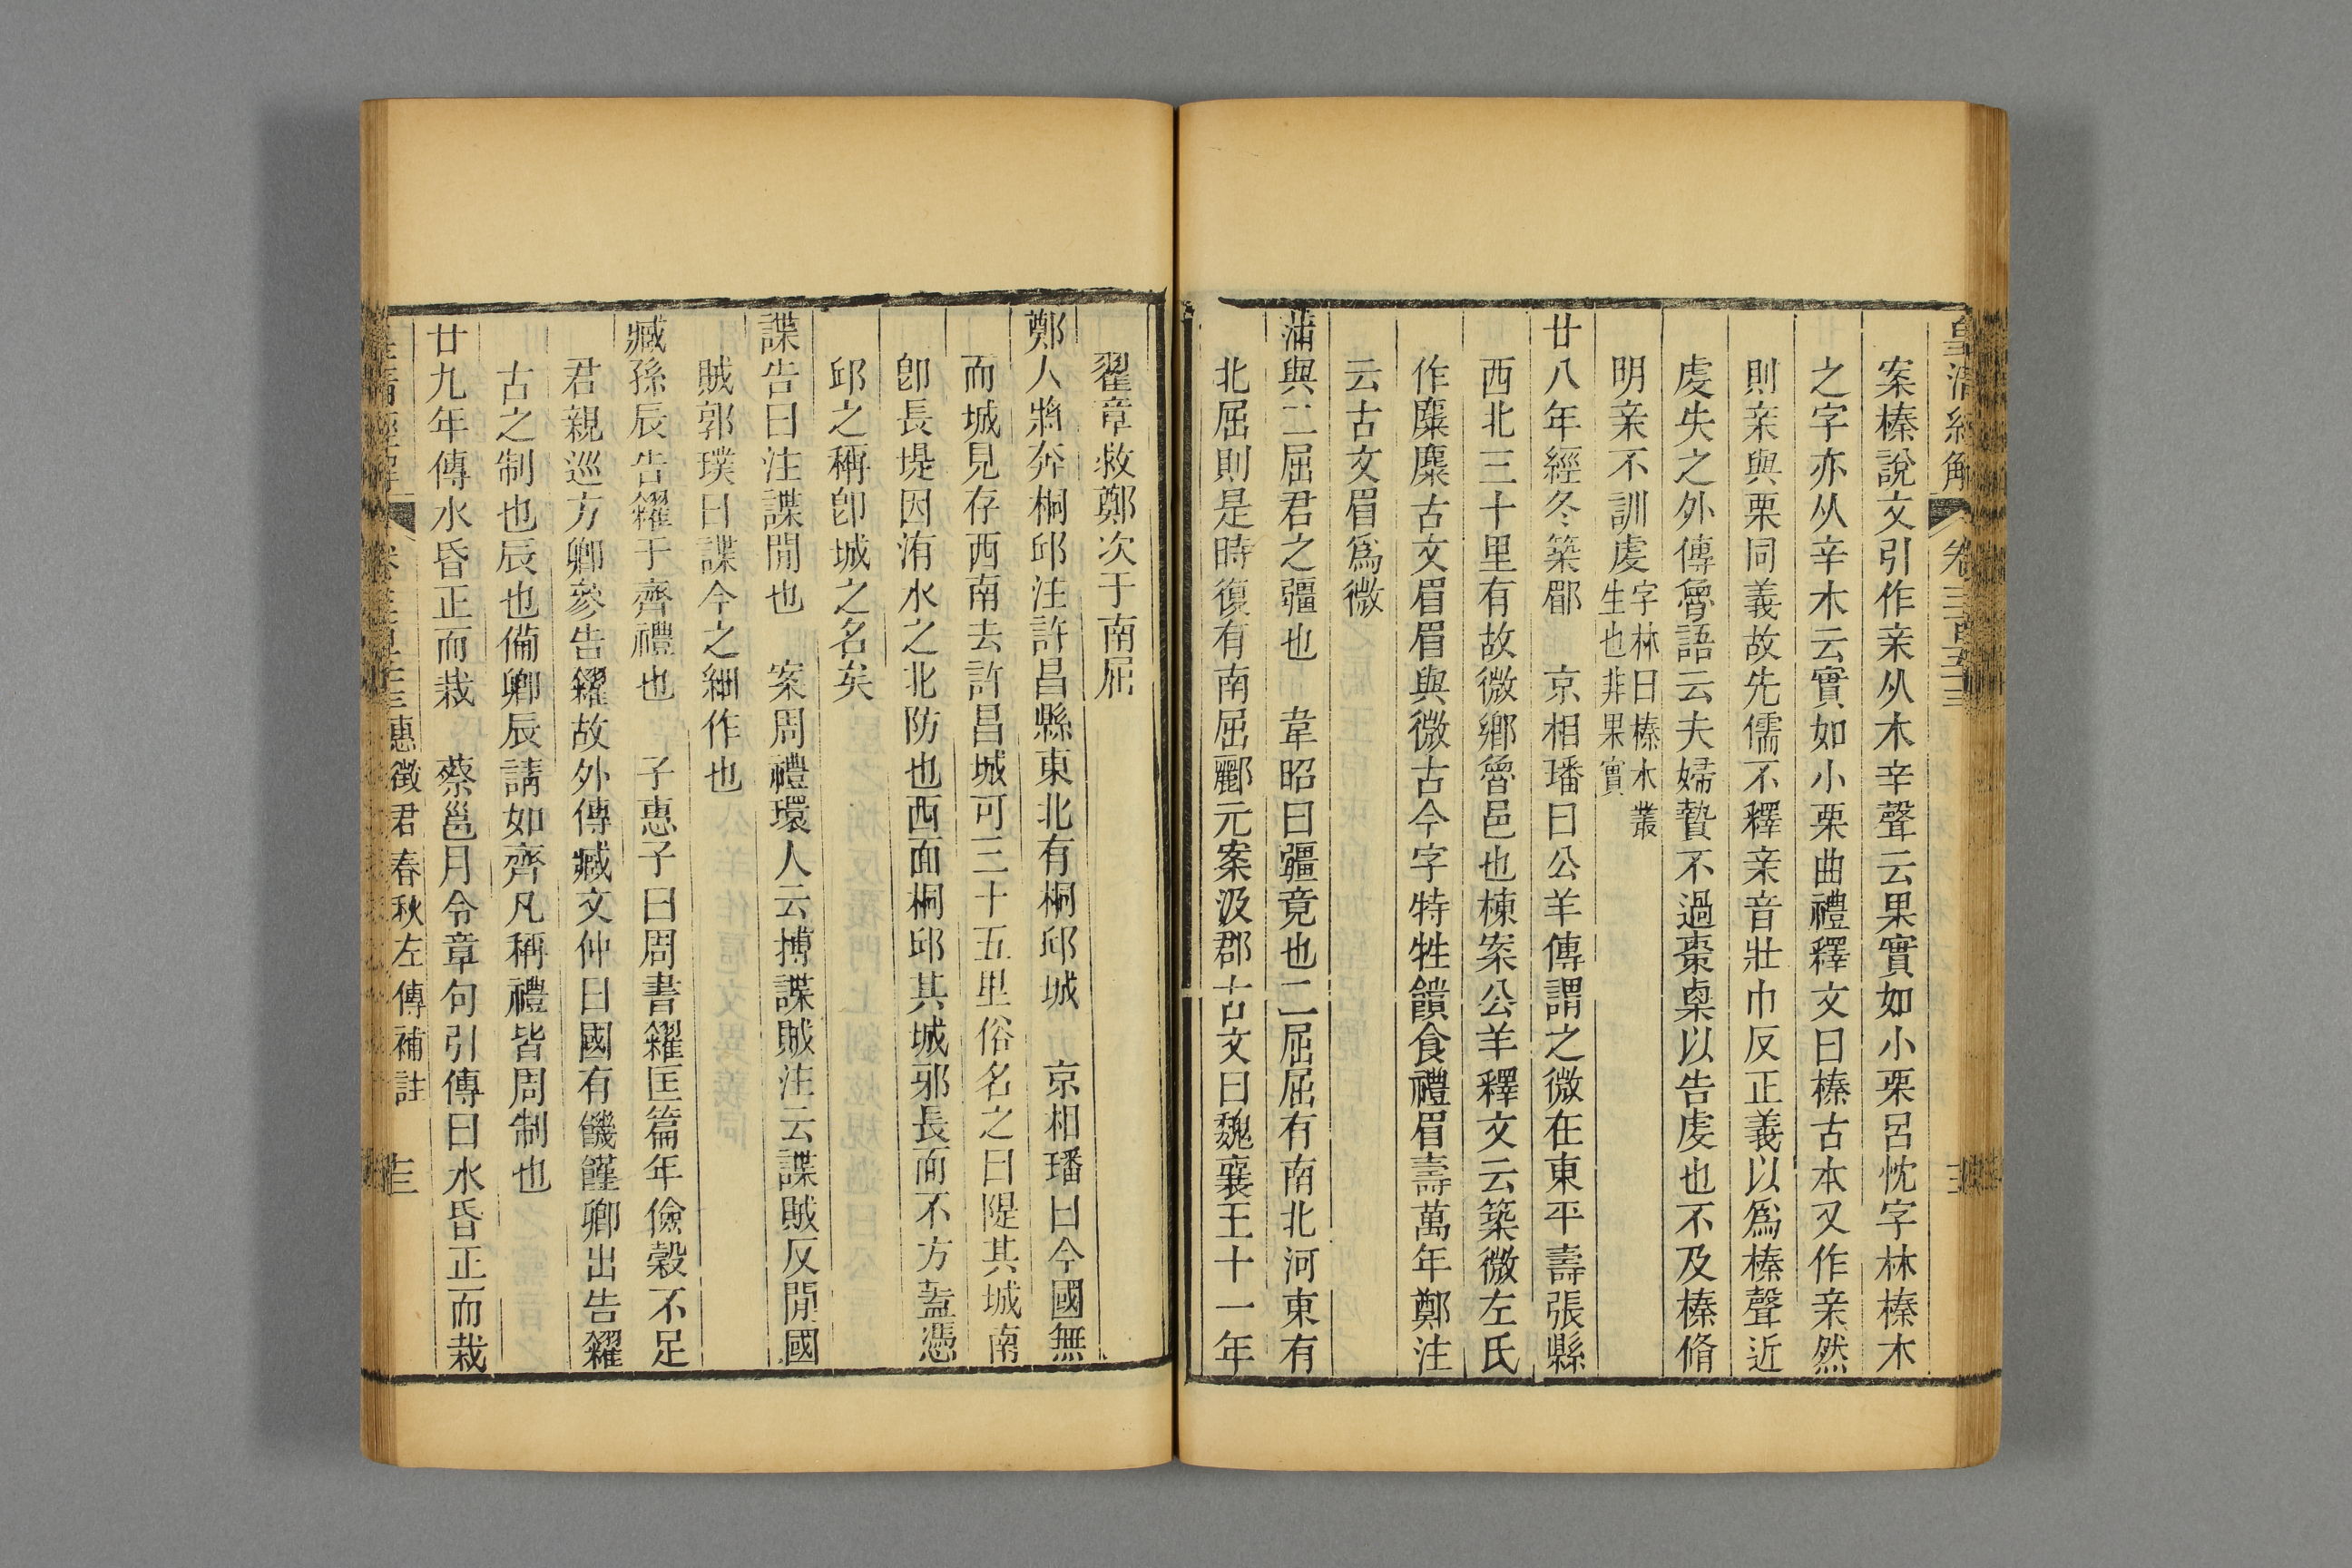 皇清經解 卷三百五十三
案榛說文引作亲从木辛聲云果實如小栗呂忱字林榛木
之字亦从辛木云實如小栗曲禮釋文曰榛古本又作亲然
則亲與栗同義故先儒不釋亲音壯巾反正義以爲榛聲近
虔失之外傳魯語云夫婦贄不過棗㮚以告虔也不及榛脩
明亲不訓虔字林曰榛木叢生也非果實
廿八年經冬築郿 京相璠曰公羊傳謂之微在東平壽張縣
西北三十里有故微鄉魯邑也棟案公羊釋文云築微左氏
作麋麋古文眉眉與微古今字特牲饋食禮眉壽萬年鄭注
云古文眉爲微
蒲與二屈君之疆也 韋昭曰疆竟也二屈屈有南北河東有
北屈則是時復有南屈酈元案汲郡古文曰魏襄王十一年
翟章救鄭次于南屈
鄭人將奔桐邱注許昌縣東北有桐邱城 京相璠曰今國無
而城見存西南去許昌城可三十五里俗名之曰隄其城南
卽長堤因洧水之北防也西面桐邱其城邪長而不方蓋憑
邱之稱卽城之名矣
諜告曰注諜閒也 案周禮環人云搏諜賊注云諜賊反閒國
賊郭璞曰諜今之細作也
臧孫辰告糴于齊禮也 子惠子曰周書糴匡篇年儉穀不足
君親巡方卿參告糴故外傳臧文仲曰國有饑饉卿出告糴
古之制也辰也備卿辰請如齊凡稱禮皆周制也
廿九年傳水昏正而栽 蔡邕月令章句引傳曰水昏正而栽
皇清經解 惠徵君春秋左傳補註